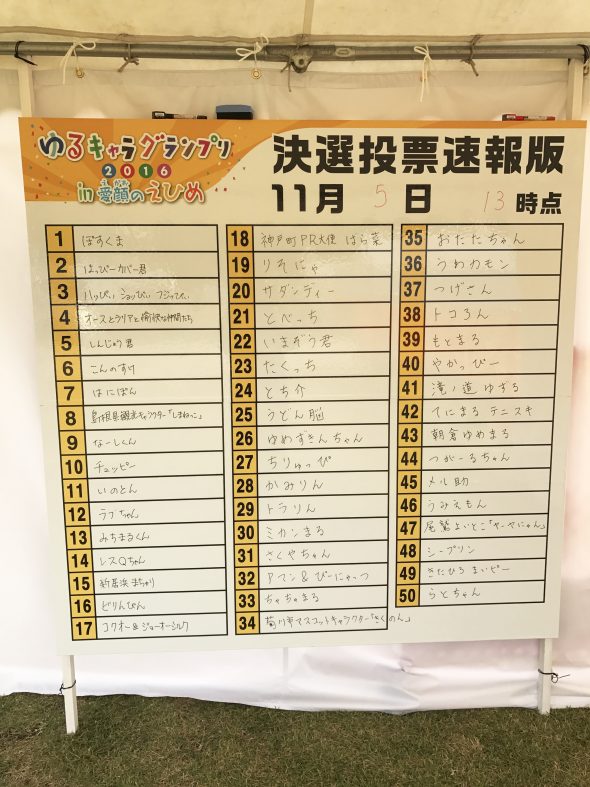 ゆるキャラグランプリ
2016
in 愛顔のえひめ
えがお
決選投票速報版
11月 5 日 13 時点
1 ぽすくま
2 はっぴーカバー君
3 ハッぴぃ ショッぴぃ フジッてぃ
4 オースとラリアと愉快な仲間たち
5 しんじゅう君
6 こんのすけ
7 はにぽん
8 島根県観光キャラクター「しまねっこ」
9 なーしくん
10 チュッピー
11 いのとん
12 ラブちゃん
13 みちまるくん
14 レスQちゃん
15 新居浜まちゅり
16 どりんぴん
17 コクオー&ジョーオーシルク
18 神戸町PR大使 ばら菜
19 りそにゃ
20 サダンディー
21 とべっち
22 いまぞう君
23 たくっち
24 とち介
25 うどん脳
26 ゆめずきんちゃん
27 ちりゅっぴ
28 かみりん
29 トラりん
30 ミカンまる
31 さくやちゃん
32 Pマン&ぴーにゃっつ
33 ちゃちゃまる
34 菊川市マスコットキャラクター「きくのん」
35 おたたちゃん
36 うわカモン
37 つげさん
38 トコろん
39 もとまる
40 やかっぴー
41 滝ノ道ゆずる
42 てにまる テニスキ
43 朝倉ゆめまる
44 つがーるちゃん
45 メル助
46 うみえもん
47 尾鷲よいとこ「ヤーヤにゃん」
48 シープリン
49 きたひろ まいピー
50 らとちゃん